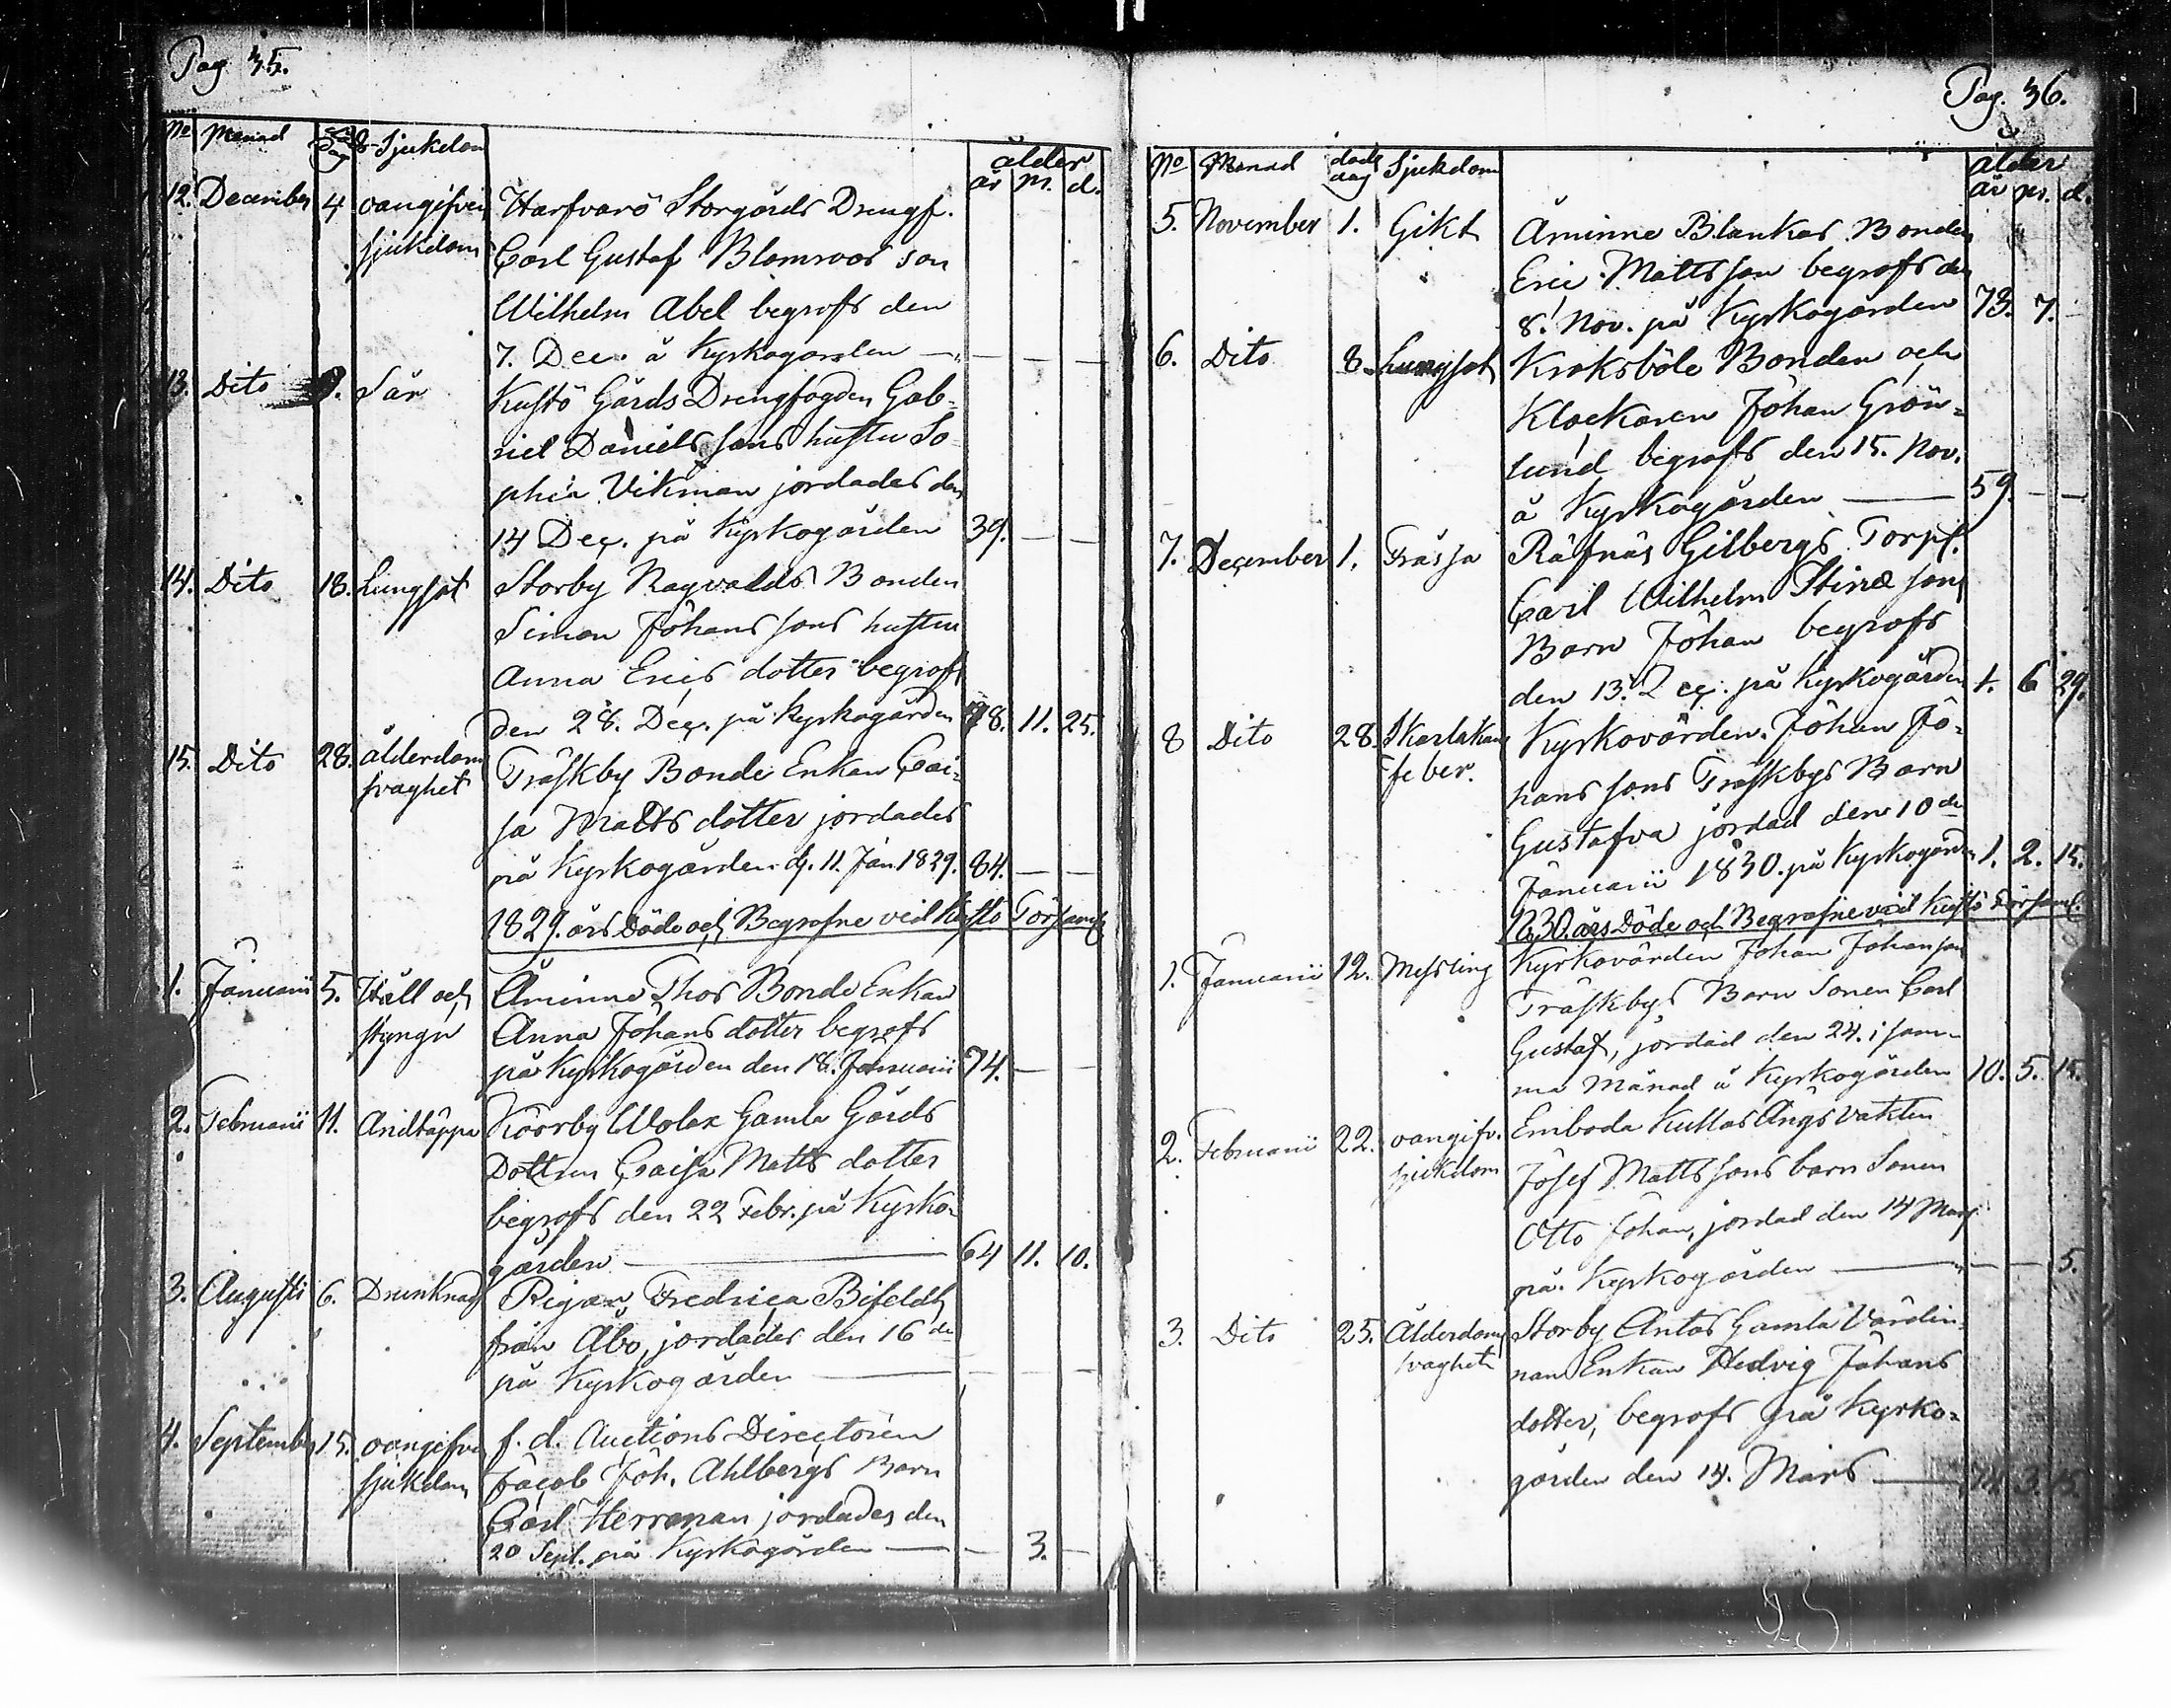 Pag. 35.
No Månad döds dag Sjukdom ålder
år m. d.
12. December 4 oangifven Harfvarö Storgårds Drengf.
sjukdom Carl Gustaf Blomroos son
Wilhelm Abel begrofs den
7. Dec. å Kyrkogården — — —
13. Dito 9. Sår Kustö Gårds Drengfogden Gab-
riel Danielssons hustru So-
phia Vikman jordades den
14 Dec. på Kyrkogården 39. — —
14. Dito 18. Lungsot Storby Ragvalds Bonden
Simon Johanssons hustru
Anna Erics dotter begrofs
den 28. Dec. på kyrkogården 28. 11. 25.
15. Dito 28. ålderdom Träskby Bonde Enkan Cai-
svaghet sa Matts dotter jordades
på Kyrkogården d. 11. Jan. 1829. 84. — —
1829. års Döde och Begrafne vid Kustö Församl.
1. Januarii 5. Håll och Åminne Thos Bonde Enkan
styngn Anna Johans dotter begrofs
på Kyrkogården den 18. Januarii 74. — —
2. Februarii 11. Andtäppa Koorby Wolax Gamla Gårds
Dottren Caisa Matts dotter
begrofs den 22 Febr. på Kyrko-
gården — 64 11. 10.
3. Augusti 6. Drunknad Pigan Fredrica Bifeldt
från Åbo, jordades den 16 de
på Kyrkogården — — — —
4. September 15. oangifven f. d. Auctions Directören
sjukdom Jacob Joh. Ahlbergs Barn
Carl Herrman jordades den
20 Sept. på Kyrkogården — — 3. —
Pag. 36.
No Månad döds dag Sjukdom ålder
år m. d.
5. November 1. Gikt Åminne Blankas Bonden
Eric Mattsson begrofs den
8. Nov. på Kyrkogården 73. 7. —
6. Dito 8. Lungsot Kroksböle Bonden och
Klockaren Johan Grön-
lund begrofs den 15. Nov.
å Kyrkogården — 59. — —
7. December 1. Frässa Räfnäs Gilbergs Torpf.
Carl Wilhelm Stinssons
Barn Johan begrofs
den 13. Dec. på Kyrkogården 1. 6 29.
8 Dito 28. Skarlakans Kyrkovärden Johan Jo-
feber. hanssons Träskbys Barn
Gustafva jordad den 10 de
Januarii 1830. på Kyrkogården 1. 2. 15.
1830. års Döde och Begrafne vid Kustö Församl.
1. Januarii 12. Messling Kyrkovärden Johan Johansson
Träskbys Barn Sonen Carl
Gustaf, jordad den 24. i sam-
ma Månad å Kyrkogården 10. 5. 15.
2. Februarii 22. oangifv. Emboda Kullas Ängsvakten
sjukdom Josef Mattssons barn Sonen
Otto Johan, jordad den 14 Mars
på Kyrkogården — — — 5.
3. Dito 25. Ålderdoms Storby Antas Gamla Värdin-
svaghet nan Enkan Hedvig Johans
dotter, begrofs på Kyrko-
gården den 14. Mars —